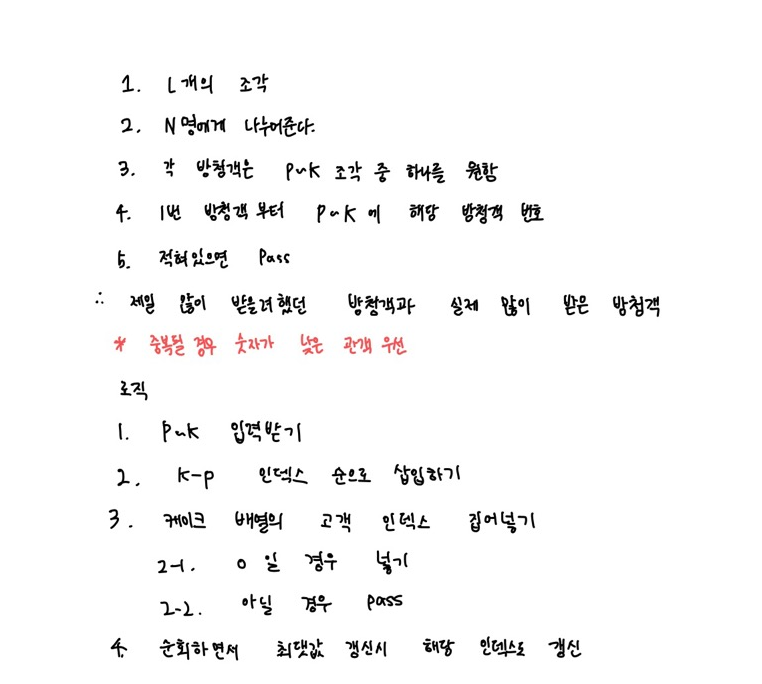 1. L개의 조각
2. N명에게 나누어준다.
3. 각 방청객은 P~K 조각 중 하나를 원함
4. 1번 방청객 부터 P~K에 해당 방청객 번호
5. 적혀있으면 Pass
∴ 제일 많이 받을려했던 방청객과 실제 많이 받은 방청객
* 중복될 경우 숫자가 낮은 관객 우선
로직
1. P~K 입력받기
2. K-P 인덱스 순으로 삽입하기
3. 케이크 배열의 고객 인덱스 집어넣기
2-1. 0 일 경우 넣기
2-2. 아닐 경우 pass
4. 순회하면서 최댓값 갱신시 해당 인덱스로 갱신